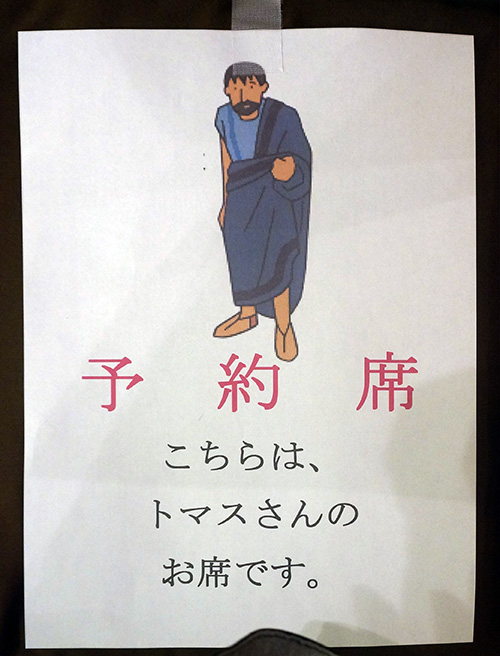 予約席
こちらは、
トマスさんの
お席です。